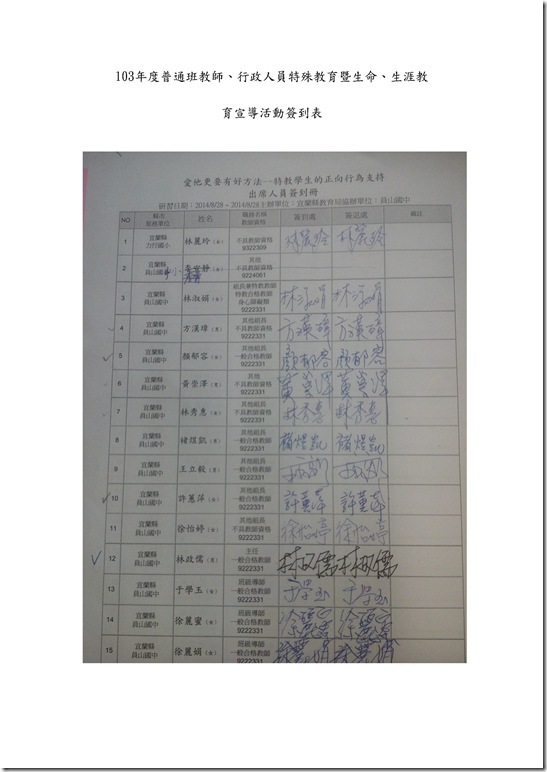 103年度普通班教師、行政人員特殊教育暨生命、生涯教
育宣導活動簽到表
愛他更要有好方法—特教學生的正向行為支持
出席人員簽到冊
研習日期：2014/8/28 ~ 2014/8/28主辦單位：宜蘭縣教育局協辦單位：員山國中
NO 縣市 服務單位 姓名 職務名稱 教師資格 簽到處 簽退處 備註
1 宜蘭縣 力行國小 林麗玲（女） 不具教師資格 9322309 林麗玲 林麗玲
2 宜蘭縣 員山國中 其他 9224061
3 宜蘭縣 員山國中 林淑娟（女） 組長兼特教教師 特教合格教師 身心障礙類 9222331 林淑娟 林淑娟
4 宜蘭縣 員山國中 方漢瑋（男） 其他組長 不具教師資格 9222331 方漢瑋 方漢瑋
5 宜蘭縣 員山國中 顏郁容（女） 其他組長 一般合格教師 9222331 顏郁容 顏郁容
6 宜蘭縣 員山國中 黃崇澤（男） 其他 不具教師資格 9222331 黃崇澤 黃崇澤
7 宜蘭縣 員山國中 林秀惠（女） 其他組長 不具教師資格 9222331 林秀惠 林秀惠
8 宜蘭縣 員山國中 褚煜凱（男） 其他組長 一般合格教師 9222331 褚煜凱 褚煜凱
9 宜蘭縣 員山國中 王立毅（男） 其他組長 一般合格教師 9222331
10 宜蘭縣 員山國中 許蕙萍（女） 其他組長 一般合格教師 9222331 許蕙萍 許蕙萍
11 宜蘭縣 員山國中 徐怡婷（女） 其他組長 不具教師資格 9222331 徐怡婷 徐怡婷
12 宜蘭縣 員山國中 林政儒（男） 主任 一般合格教師 9222331 林政儒 林政儒
13 宜蘭縣 員山國中 于學玉（女） 班級導師 一般合格教師 9222331 于學玉 于學玉
14 宜蘭縣 員山國中 徐麗蜜（女） 班級導師 一般合格教師 9222331 徐麗蜜 徐麗蜜
15 宜蘭縣 員山國中 徐麗娟（女） 班級導師 一般合格教師 9222331 徐麗娟 徐麗娟